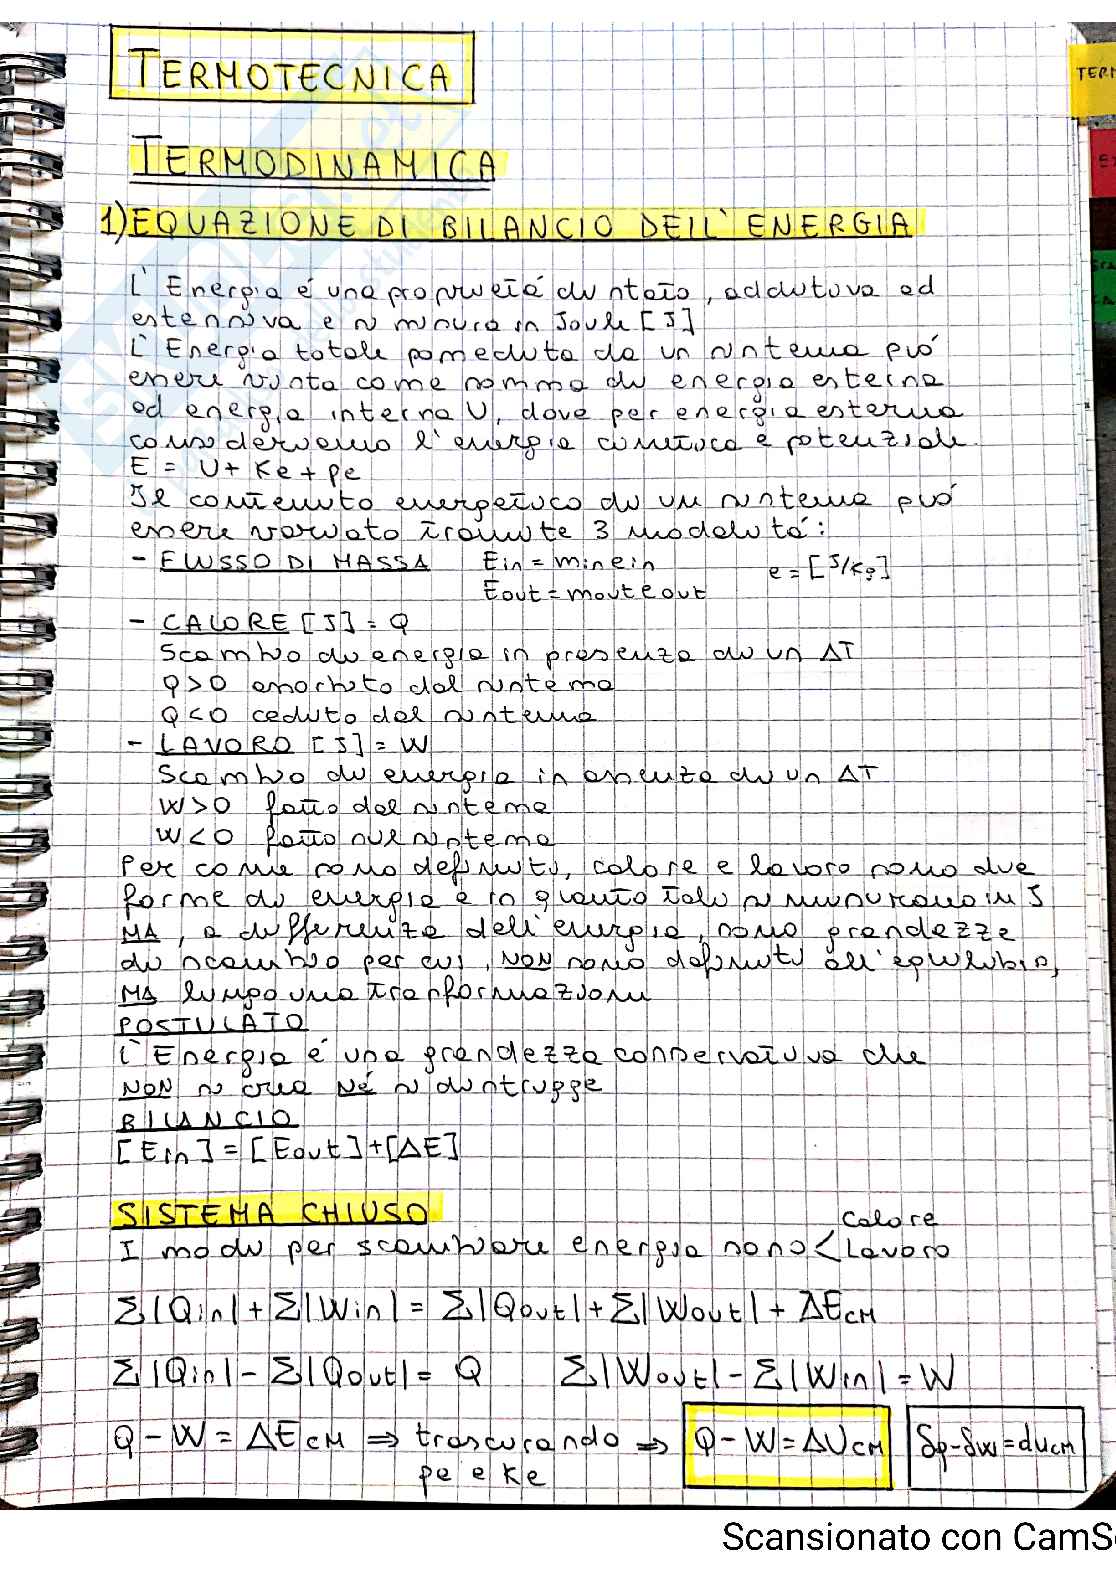 TERMOTECNICA
TERM
TERMODINAMICA
1) EQUAZIONE DI BILANCIO DELL'ENERGIA
L'Energia é una proprietá di stato, additiva ed
estensiva e si misura in Joule [J]
L'Energia totale posseduta da un sistema può
essere vista come somma di energia esterna
ed energia interna U, dove per energia esterna
consideriamo l'energia cinetica e potenziale.
E = U + Ke + pe
Il contenuto energetico di un sistema può
essere variato tramite 3 modalitá:
- FLUSSO DI MASSA Ein = min ein e = [J/Kg]
Eout = mout eout
- CALORE [J] = Q
Scambio di energia in presenza di un ΔT
Q>0 assorbito dal sistema
Q<0 ceduto dal sistema
- LAVORO [J] = W
Scambio di energia in assenza di un ΔT
W>0 fatto dal sistema
W<0 fatto sul sistema
Per come sono definiti, calore e lavoro sono due
forme di energia e in quanto tali si misurano in J
MA, a differenza dell'energia, sono grandezze
di scambio per cui, NON sono definiti all'equilibrio,
MA lungo una trasformazioni
POSTULATO
L'Energia é una grandezza conservativa che
NON si crea Né si distrugge
BILANCIO
[Ein] = [Eout] + [ΔE]
SISTEMA CHIUSO
I modi per scambiare energia sono < Calore
Lavoro
Σ|Qin| + Σ|Win| = Σ|Qout| + Σ|Wout| + ΔECM
Σ|Qin| - Σ|Qout| = Q Σ|Wout| - Σ|Win| = W
Q - W = ΔECM ⇒ trascurando ⇒ Q - W = ΔUCM δq-δw=duCM
pe e Ke
Scansionato con CamSc